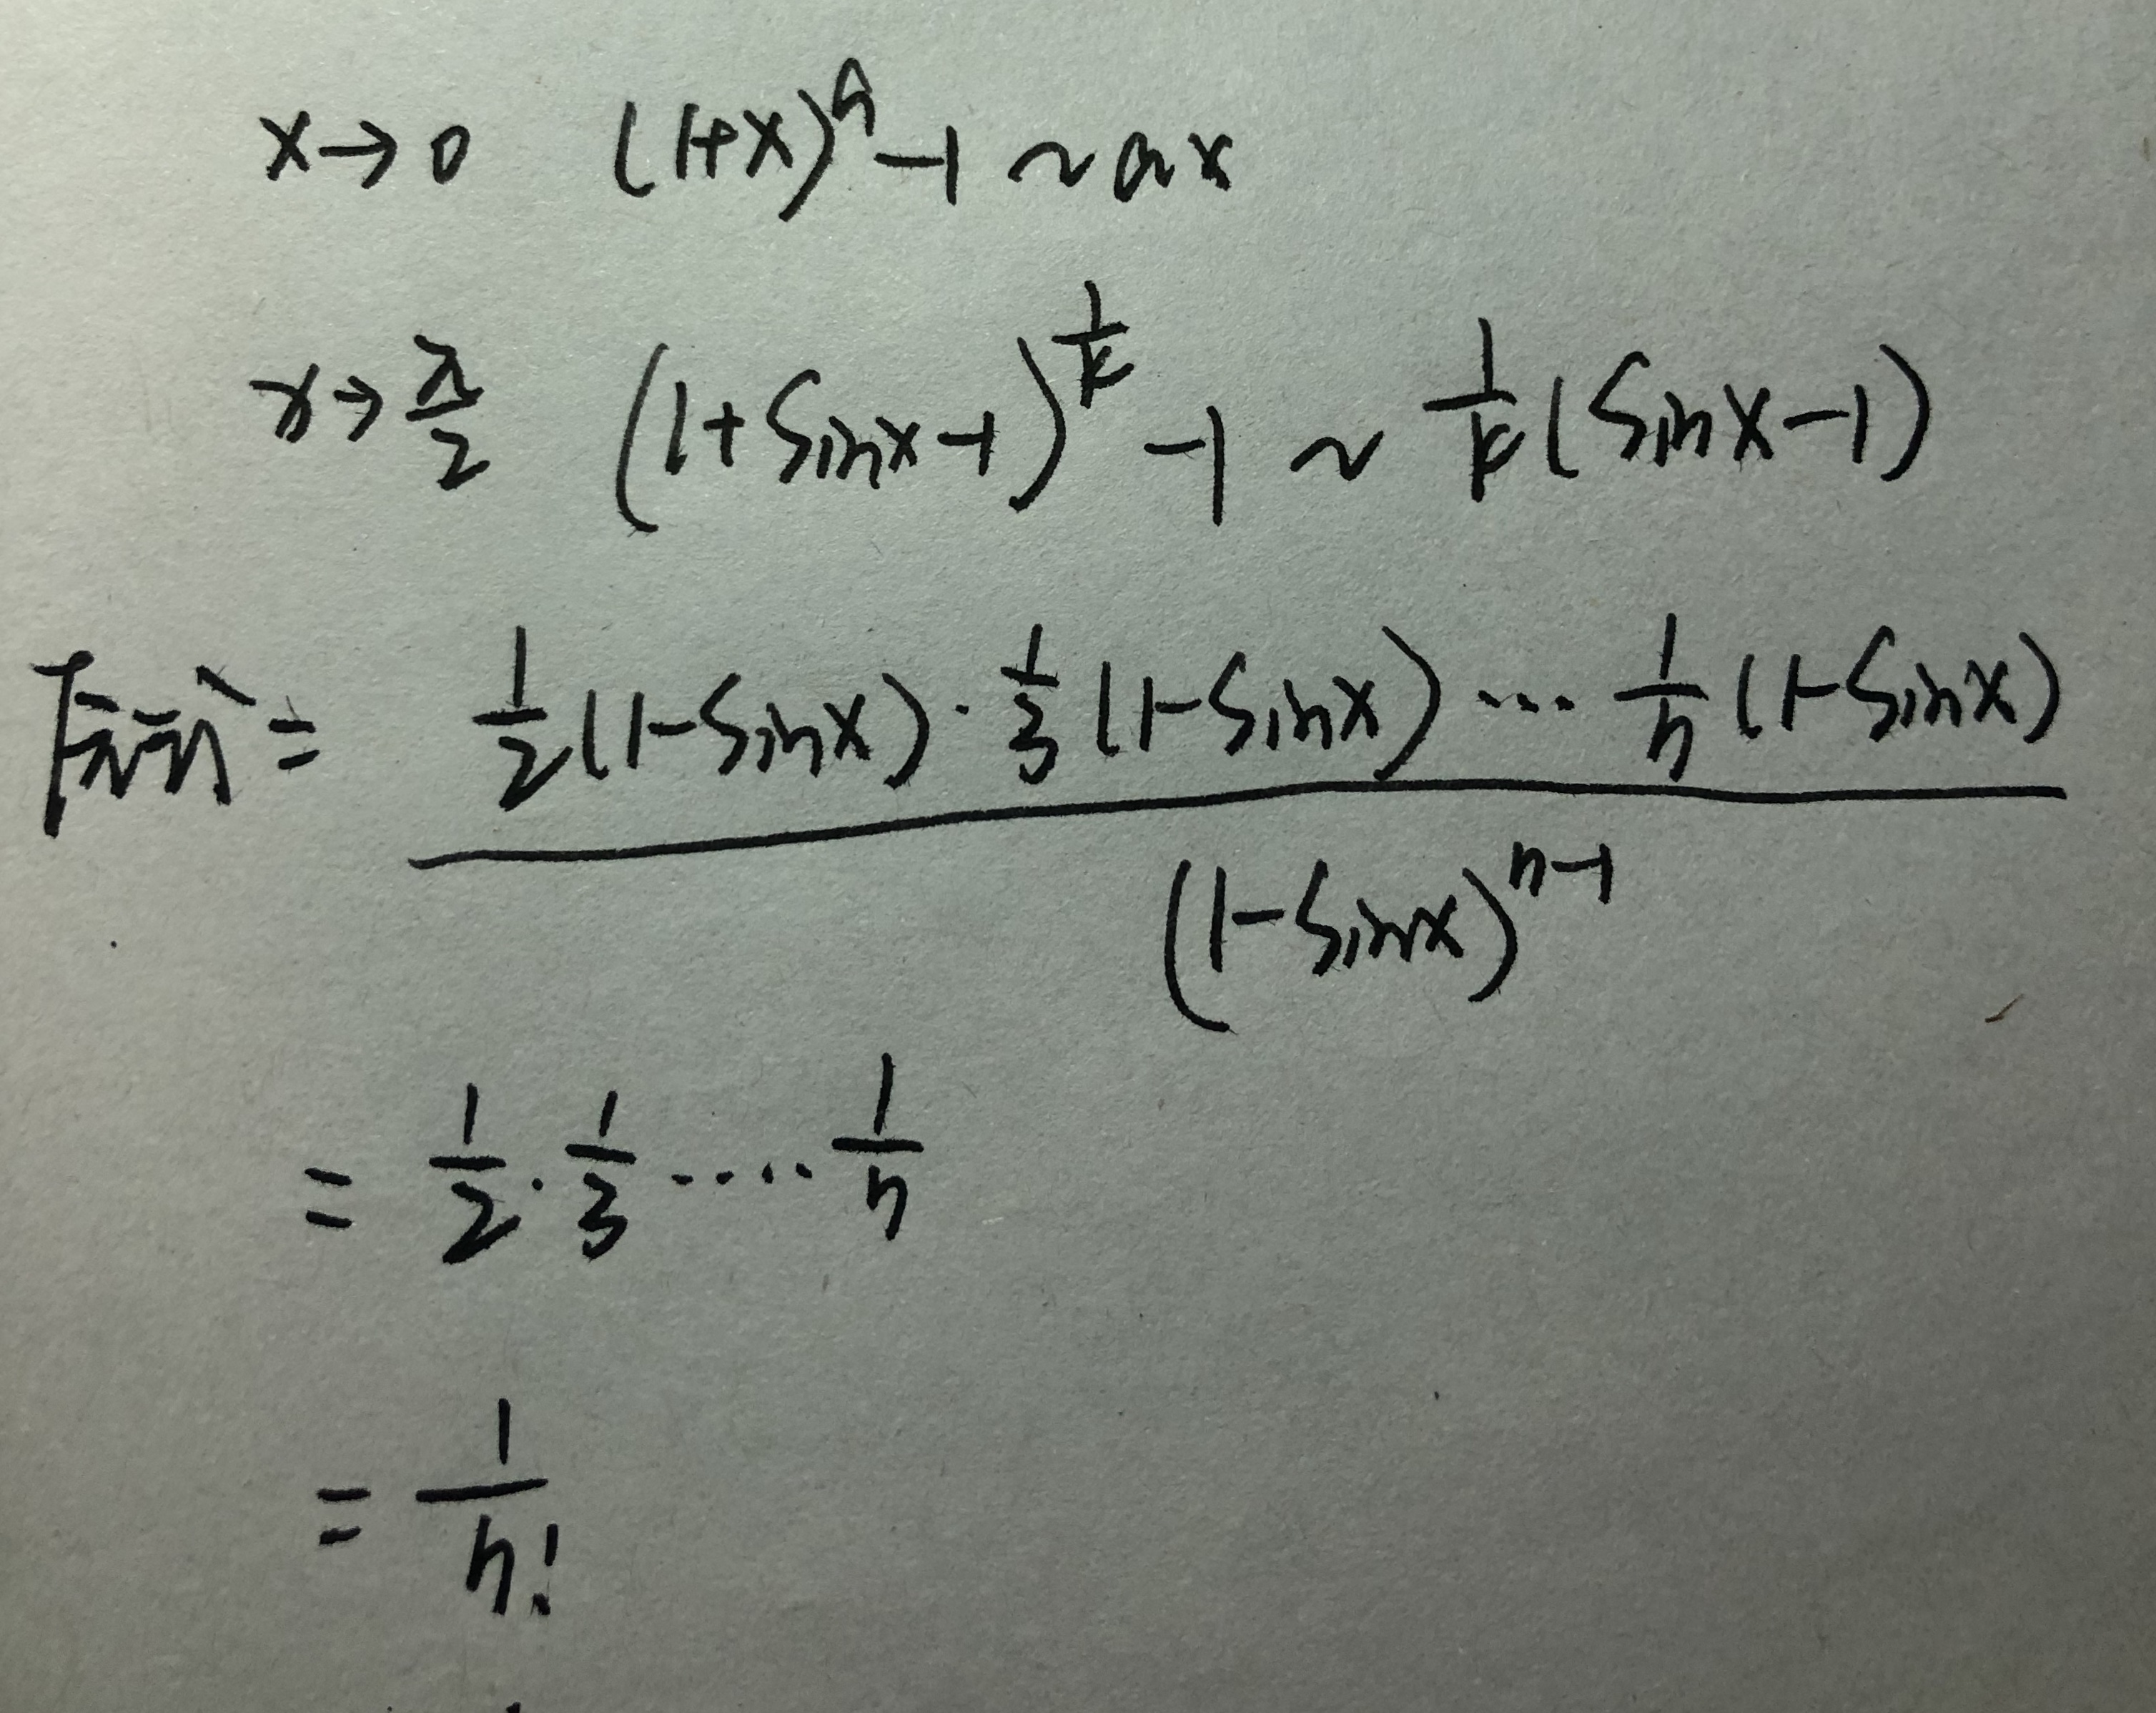 x→0 (1+x)^a -1 ~ ax
x→π/2 (1+sinx-1)^(1/k) -1 ~ 1/k (sinx-1)
原式= (1/2 (1-sinx) · 1/3 (1-sinx) ··· 1/n (1-sinx)) / (1-sinx)^(n-1)
= 1/2 · 1/3 ····· 1/n
= 1/n!